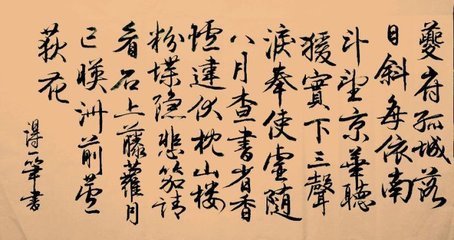 夔府孤城落
日斜每依南
斗望京華聽
猨實下三聲
淚奉使虛隨
八月查畫省香
爐違伏枕山樓
粉堞隱悲笳請
看石上藤蘿月
已映洲前蘆
荻花
得一筆書